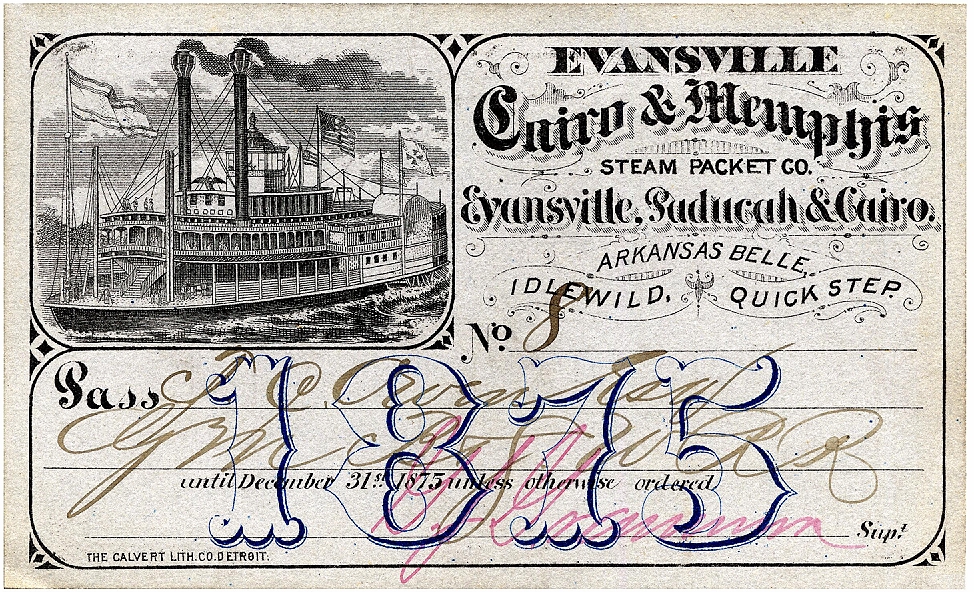 EVANSVILLE
Cairo & Memphis
STEAM PACKET CO.
Evansville, Paducah & Cairo.
ARKANSAS BELLE,
IDLEWILD, QUICK STEP.
No. 8
Pass
1875
until December 31st 1875 unless otherwise ordered
Supt.
THE CALVERT LITH. CO. DETROIT.